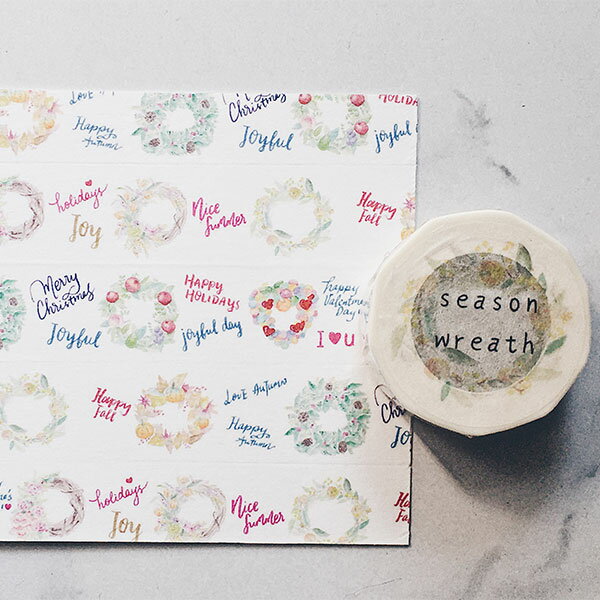 Love
Christmas
HOLIDA
Happy
Autumn
Joyful
joyful d
holidays
Joy
Nice
Summer
Happy
Fall
Merry
Christmas
Joyful
HAPPY
HOLIDAYS
joyful day
happy
Valentine
Day
I ♥ U
season
wreath
Happy
Fall
Love Autumn
Happy
Autumn
Ch
Joy
holidays
Joy
Nice
Summer
Ha
Fa